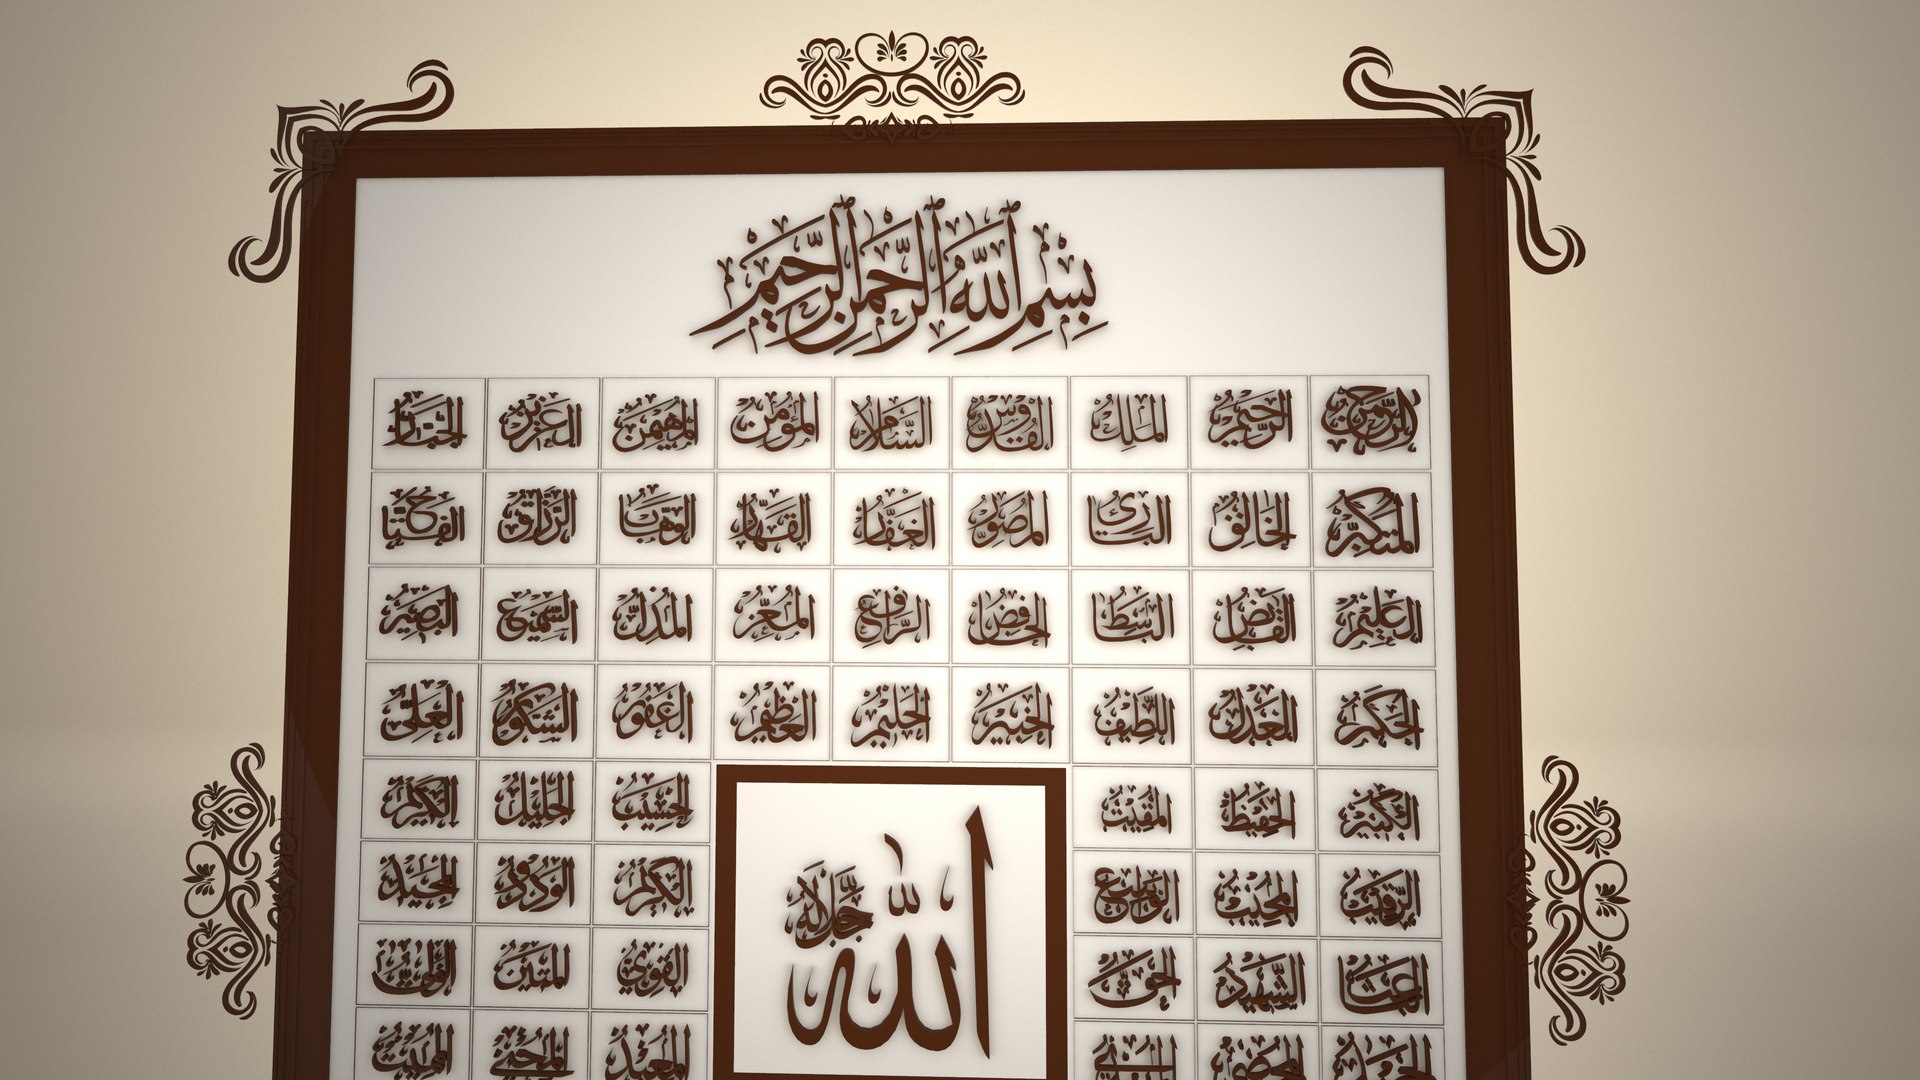 بسم الله الرحمن الرحيم
الرحمن الرحيم الملك القدوس السلام المؤمن المهيمن العزيز الجبار
المتكبر الخالق البارئ المصور الغفار القهار الوهاب الرزاق الفتاح
العليم القابض الباسط الخافض الرافع المعز المذل السميع البصير
الحكم العدل اللطيف الخبير الحليم العظيم الغفور الشكور العلي
الكبير الحفيظ المقيت الحسيب الجليل الكريم
الرقيب المجيب الواسع الحكيم الودود المجيد
الباعث الشهيد الحق القوي المتين
المعيد المحيي المميت
الله جل جلاله